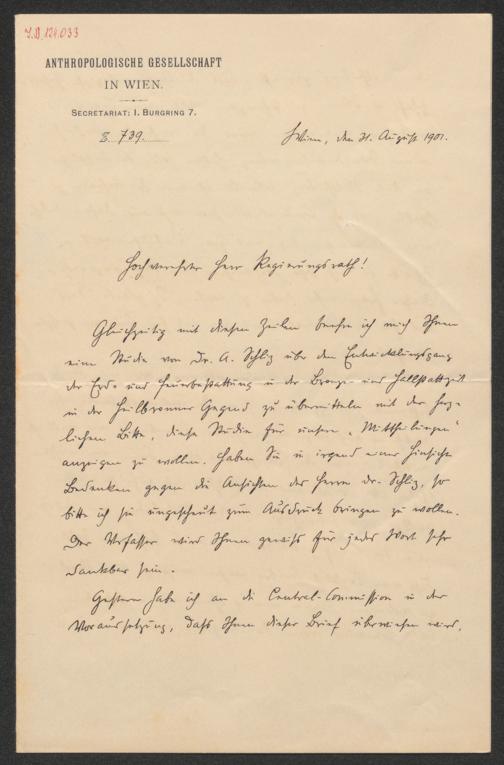 I.N. 124.033
ANTHROPOLOGISCHE GESELLSCHAFT
IN WIEN.
SECRETARIAT: I. BURGRING 7.
Z. 739.
Wien, den 31. August 1901.
Hochverehrter Herr Regierungsrath!
Gleichzeitig mit diesen Zeilen beehre ich mich Ihnen
eine Studie von Dr. A. Schliz über den Entwicklungsgang
der Erd- und Feuerbestattung in der Bronze- und Hallstattzeit
in der Heilbronner Gegend zu übermitteln mit der herz-
lichen Bitte, diese Studie für unsere „Mittheilungen“
anzeigen zu wollen. Haben Sie in irgend einer Hinsicht
Bedenken gegen die Ansichten des Herrn Dr. Schliz, so
bitte ich sie ungescheut zum Ausdruck bringen zu wollen.
Der Verfasser wird Ihnen gewiss für jedes Wort sehr
dankbar sein.
Gestern habe ich an die Central-Commission in der
Voraussetzung, dass Ihnen dieser Brief überwiesen wird,